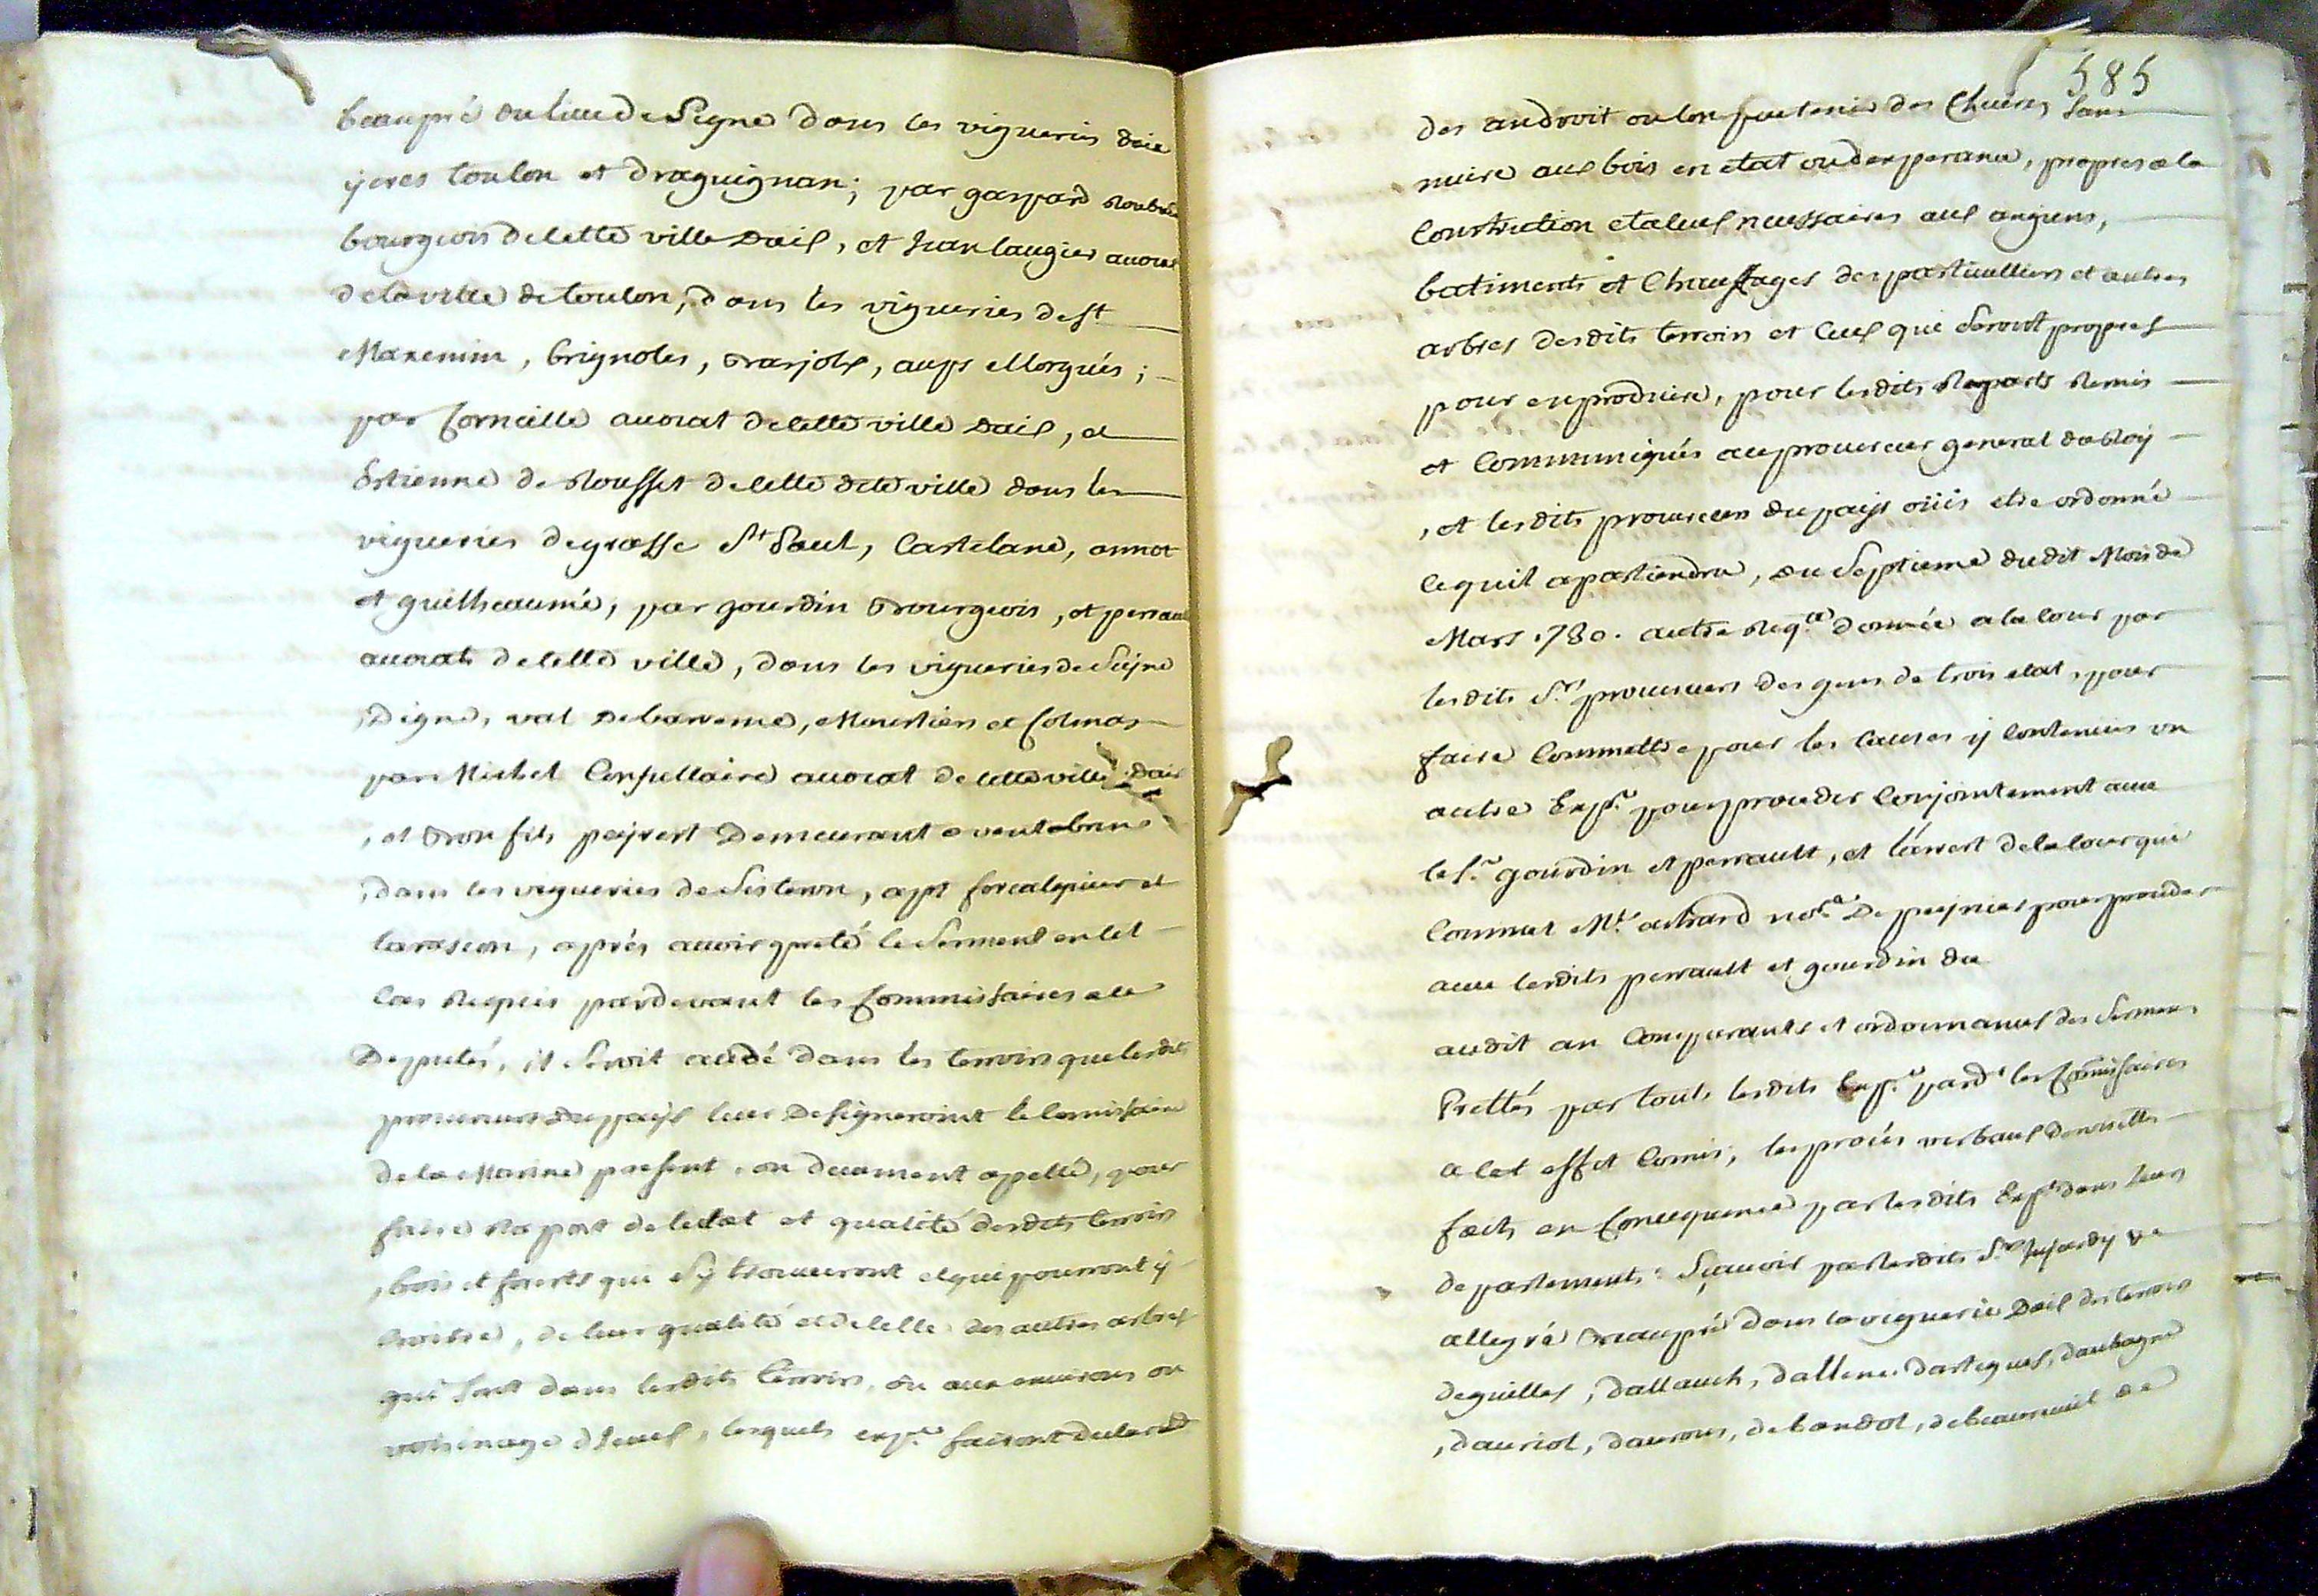 beaupré du lieu de Signe dans les vigueries daix
ÿeres toulon et draguignan; par gaspard Roubaud
bourgeois de cette ville daix, et Jean laugier avocat
de la ville de toulon, dans les vigueries de St
Maxemin, brignoles, Barjols, aups et lorgués;
par Corneille avocat de cette ville daix, et
Estienne de Rousset de cette dite ville dans les
vigueries de grasse St Paul, Castelane, annot
et guilheaume, par gourdin Bourgeois, et perrault
avocats de cette ville, dans les vigueries de Seÿne
Digne, val de bareme, Moustiers et Colmas
par Michel avocat de cette ville daix
, et Bon fils demeurant a ventabren
, dans les vigueries de Sisteron, apt forcalquier et
tarascon, aprés avoir pretté le Serment en tel
cas Requis pardevant les Commissaires a ce
Deputés, il Seroit accedé dans les terroirs que lesdits
procureurs du paÿs leur designeroint le Comissaire
de la Marine present, ou deuement appellé, pour
faire Raport de letat et qualité desdits terroirs
, bois et forets qui s'ÿ trouveront et qui pourront ÿ
Croitre, de leur qualité et de celle des autres arbres
qui sont dans lesdits terroirs, ou aux environs ou
voisinage diceux, lesquels exp.ts fairont declaraõn
585
des androit ou lon peut tenir des Chevres sans
nuire aux bois en etat ou desperance, propres a la
Construction et a ceux necessaires aux engiens,
batiments et Chauffages des particulliers et autres
arbres desdits terroirs et Ceux qui Seront propres
pour en produire, pour lesdits Raports Remis
et Communiqués au procureur general du Roÿ
, et lesdits procureurs du paÿs oüis etre ordonné
ce quil apartiendra, du Septieme dudit Mois de
Mars 1730. autre Req.te donnée a la Cour par
lesdits Srs procureurs des gens de trois etat, pour
faire Commettre pour les causes ÿ contenües un
autre Exp.t pour proceder Conjointement avec
le S.r gourdin et perrault, et l'arrest de la Cour qui
Commet M.e achard no.re De peÿnier pour proceder
avec lesdits perrault et gourdin du
audit an Comparants et ordonnances des Sermens
Prettés par touts lesdits Exp.ts pard.t les Comissaires
a cet effet Comis, les procés verbaux de nouvelles
faits en Consequence par lesdits Exp.ts dans leurs
departements: Sçavoir par lesdits S.rs
allegre Beaupré dans la viguerie Daix des terroirs
deguilles, dallauch, dallene dartigues, daubagne
, dauriol, daurons, de bandol, de beaurecueil de